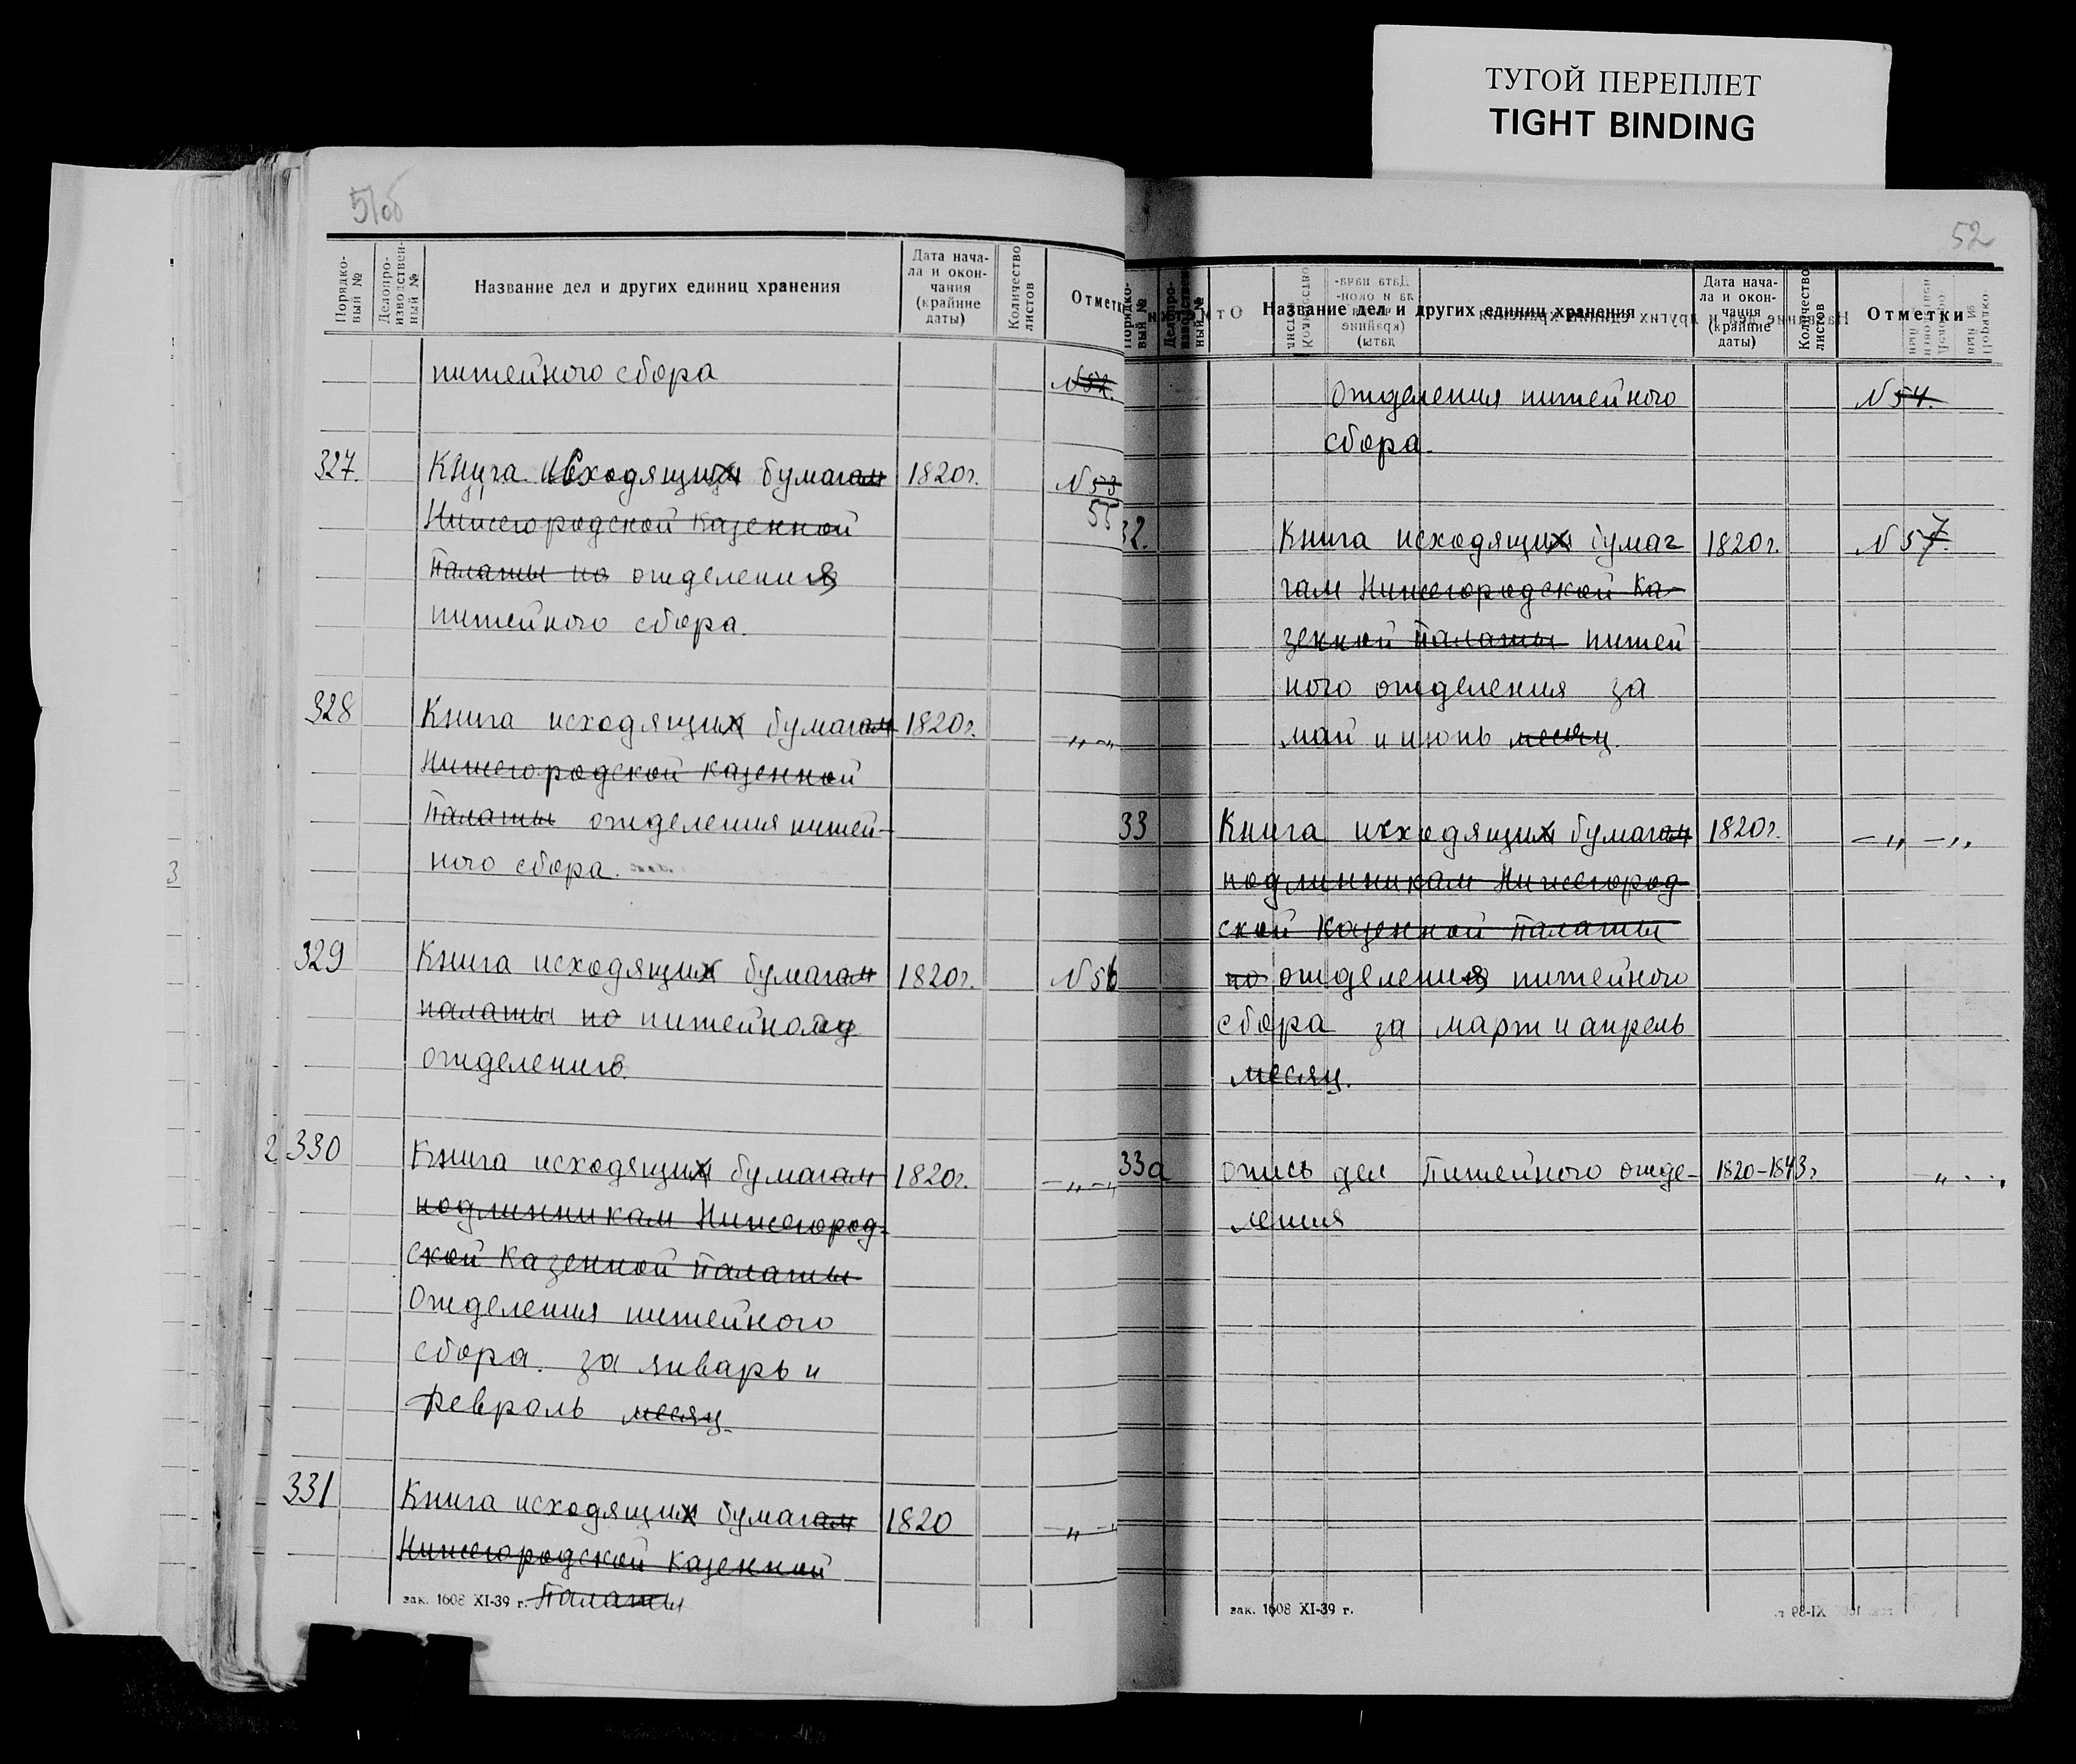 ТУГОЙ ПЕРЕПЛЕТ
TIGHT BINDING
51об
Порядко-
вый №
Делопро-
изводствен-
ный №
Название дел и других единиц хранения
Дата нача-
ла и окон-
чания
(крайние
даты)
Количество
листов
Отметк
питейного сбора
327. Книга исходящих бумагам 1820г. N 53
55
Нижегородской казенной
палаты по отделения
питейного сбора.
328 Книга исходящих бумагам 1820г. -„-„
Нижегородской казенной
Палаты отделения питей-
ного сбора.
329 Книга исходящих бумагам 1820г. N 56
палаты по питейному
отделению
2 330 Книга исходящих бумагам 1820г. -„-„
подлинникам Нижегород-
ской казенной палаты
Отделения питейного
сбора. за январь и
февроль месяц.
331 Книга исходящих бумагам 1820 -„-
Нижегородской казенной
зак. 1608 XI-39 г. Палаты
3
52
Порядко-
вый №
Делопро-
изводствен-
ный №
Название дел и других единиц хранения
Дата нача-
ла и окон-
чания
(крайние
даты)
Количество
листов
Отметки
Отделения питейного N 54.
сбора.
32. Книга исходящих бумаг 1820г. N 57.
гам Нижегородской Ка-
зенной палаты питей
ного отделения за
май и июнь месяц.
33 Книга исходящих бумагам 1820г. -„-„
подлинникам Нижегород
ской Казенной палаты
по отделения питейного
сбора за март и апрель
месяц.
33а Опись дел Питейного отде- 1820-1843г
ления
зак. 1608 XI-39 г.